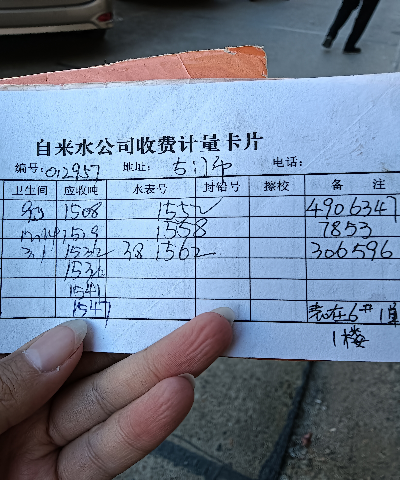 自来水公司收费计量卡片
编号: 012957 地址: 电话:
卫生间 应收吨 水表号 封铅号 擦校 备 注
1508 1552 4906347
1519 1558 7853
3.1 1532 38 1562 306596
1536
1541
1547 表在6# 1单
1楼